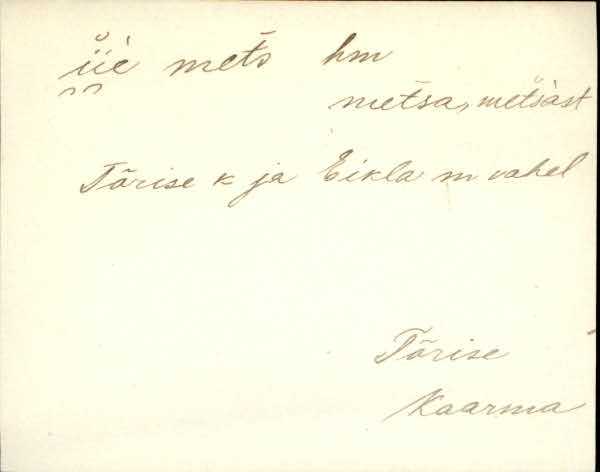 iiè mets hm
metsa, metsast
Tõrise k ja Eikla m vahel
Tõrise
Kaarma